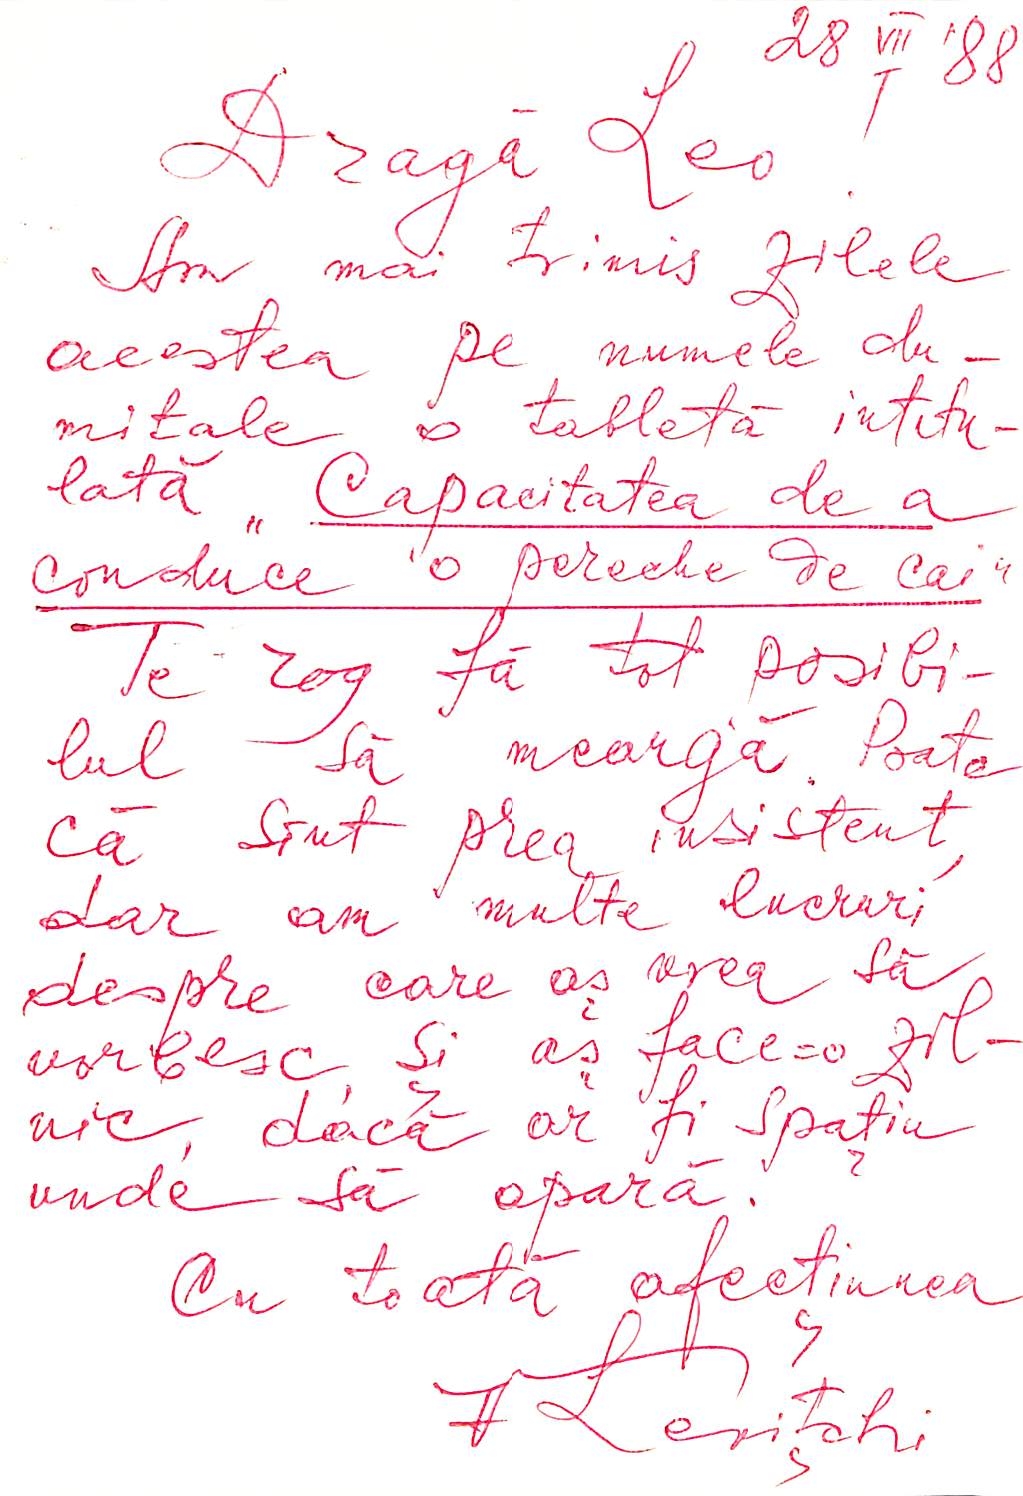 28 VII '88
Dragă Leo
Am mai trimis zilele
acestea pe numele du-
mitale o tabletă intitu-
lată „Capacitatea de a
conduce o pereche de cai"
Te rog fă tot posibi-
lul să meargă. Poate
că sînt prea insistent,
dar am multe lucruri
despre care aș vrea să
vorbesc, și aș face=o zil-
nic, dacă ar fi spațiu
unde să apară.
Cu toată afecțiunea
Levițchi